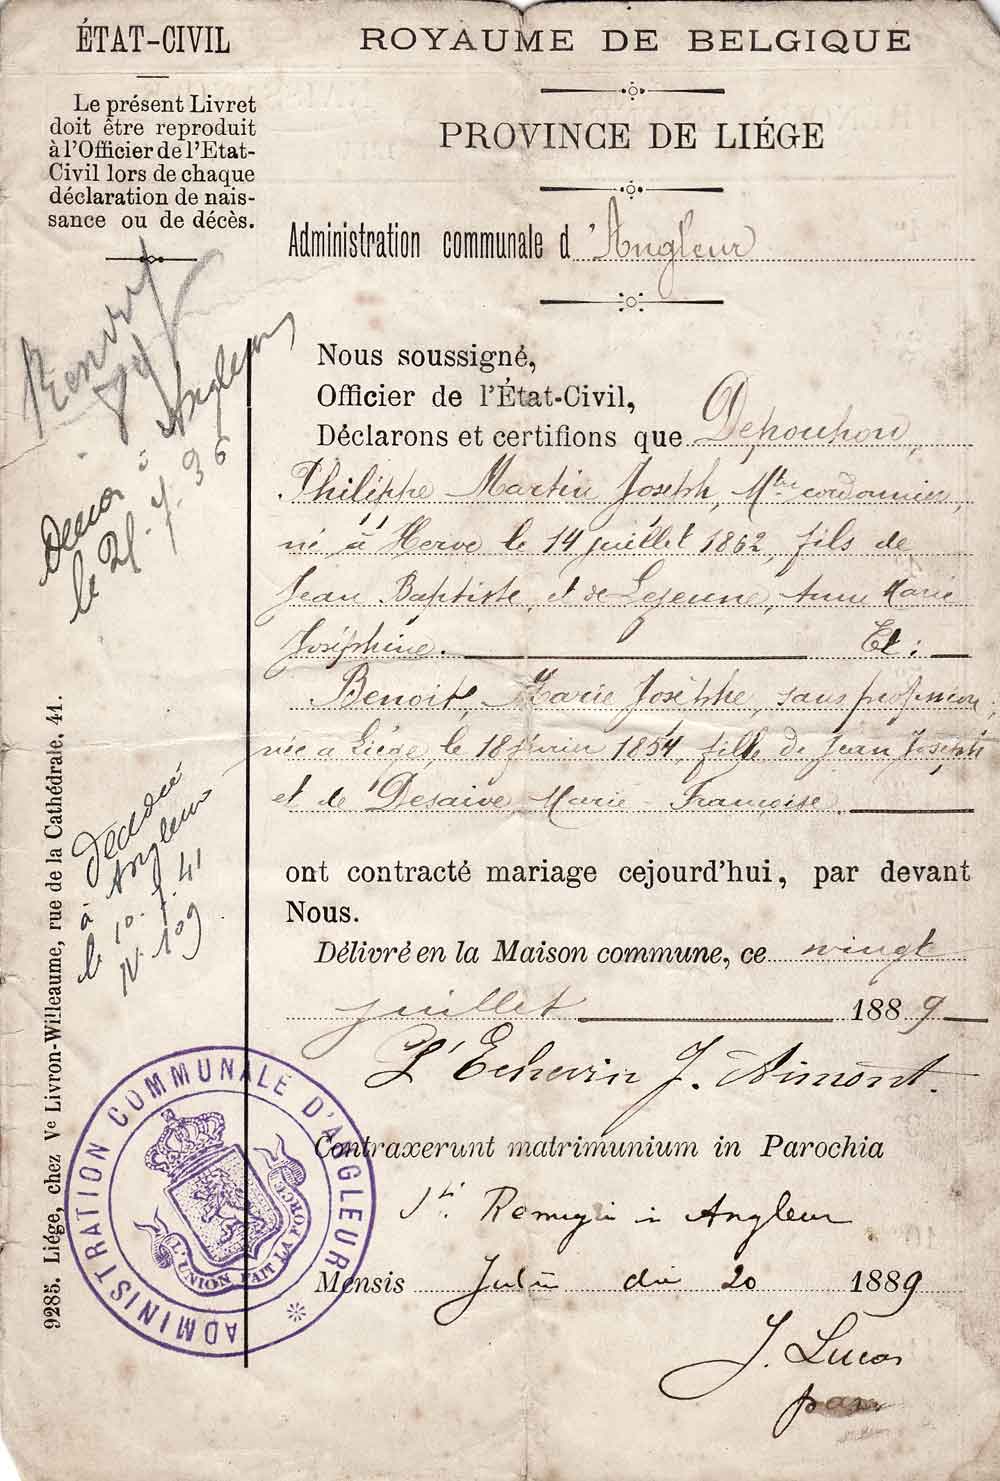 ÉTAT-CIVIL
Le présent Livret
doit être reproduit
à l'Officier de l'Etat-
Civil lors de chaque
déclaration de nais-
sance ou de décès.
ROYAUME DE BELGIQUE
PROVINCE DE LIÉGE
Administration communale d'Angleur
Nous soussigné,
Officier de l'État-Civil,
Déclarons et certifions que Depouhon,
Philippe Martin Joseph, Mtre cordonnier,
né à Herve le 14 juillet 1862, fils de
Jean Baptiste, et de Lejeune, Anne Marie
Joséphine. Et:
Benoit, Marie Josèphe, sans profession,
née a Liége, le 18 février 1854, fille de Jean Joseph
et de Desaive Marie-Françoise.
ont contracté mariage cejourd'hui, par devant
Nous.
Délivré en la Maison commune, ce vingt
juillet 1889
L'Echevin J.
Contraxerunt matrimunium in Parochia
Sti Remigii in Angleur
Mensis Julii die 20 1889
J. Lucas
Angleur
le 21. 7. 36
décédée
à Angleur
le 10. 7. 41
N. 109
ADMINISTRATION COMMUNALE D'ANGLEUR
L'UNION FAIT LA FORCE
9285. Liége, chez Ve Livron-Willeaume, rue de la Cathédrale, 41.